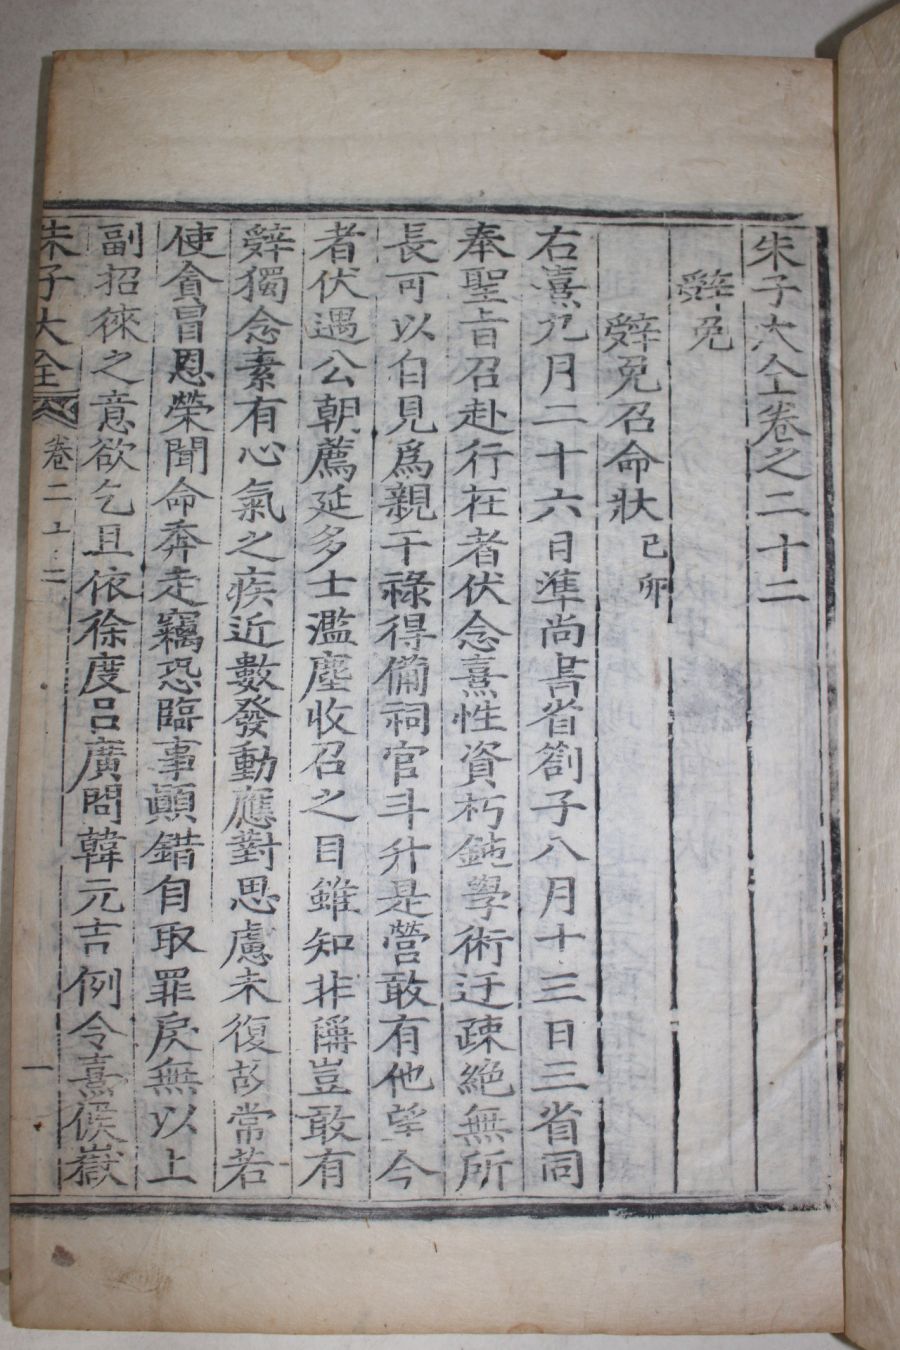 朱子大全卷之二十二
辭免
辭免召命狀 己卯
右熹九月二十六日準尚書省劄子八月十三日三省同
奉聖旨召赴行在者伏念熹性資朽鈍學術迂疎絶無所
長可以自見爲親干祿得備祠官斗升是營敢有他望今
者伏遇公朝薦延多士濫塵收召之目雖知非稱豈敢有
辭獨念素有心氣之疾近數發動應對思慮未復彭常若
使貪冒恩榮聞命奔走竊恐臨事顚錯自取罪戾無以上
副招徠之意欲乞且依徐度呂廣問韓元吉例令熹候嶽
朱子大全 卷二十二 一